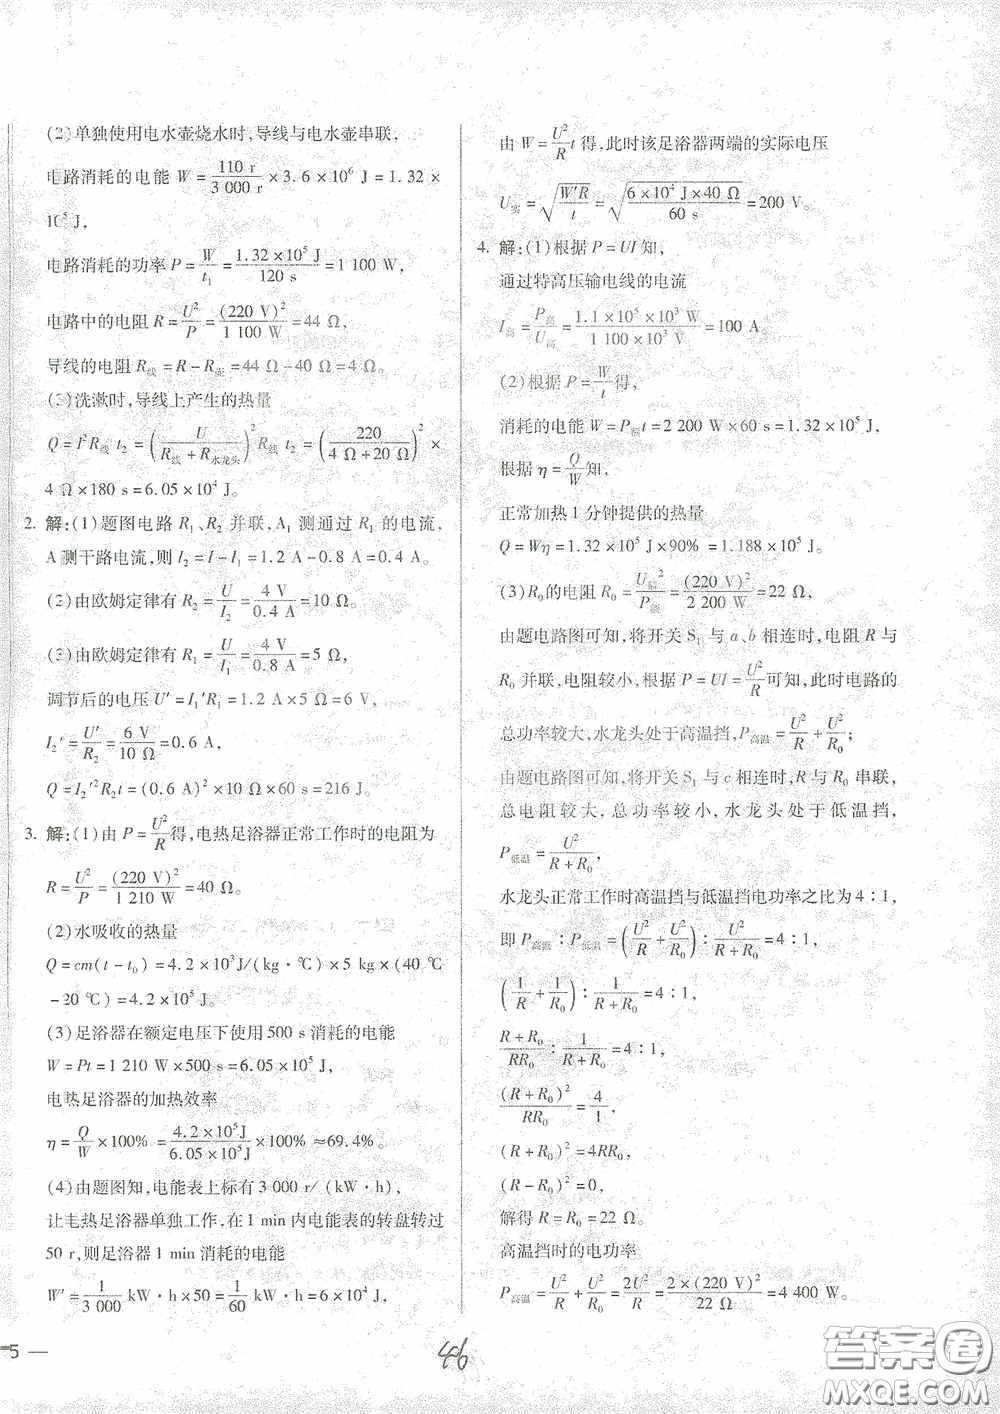 (2)单独使用电水壶烧水时,导线与电水壶串联,
电路消耗的电能 W=110 r/3 000 r×3.6×10⁶ J=1.32×
10⁵ J,
电路消耗的功率 P=W/t₁=1.32×10⁵ J/120 s=1 100 W,
电路中的电阻 R=U²/P=(220 V)²/1 100 W=44 Ω,
导线的电阻 R线=R-R壶=44 Ω-40 Ω=4 Ω。
(3)洗漱时,导线上产生的热量
Q=I²R线 t₂=(U/(R线+R水龙头))²R线 t₂=(220/(4 Ω+20 Ω))²×
4 Ω×180 s=6.05×10⁴ J。
2. 解:(1)题图电路 R₁、R₂ 并联,A₁ 测通过 R₁ 的电流,
A 测干路电流,则 I₂=I-I₁=1.2 A-0.8 A=0.4 A。
(2)由欧姆定律有 R₂=U/I₂=4 V/0.4 A=10 Ω。
(3)由欧姆定律有 R₁=U/I₁=4 V/0.8 A=5 Ω,
调节后的电压 U′=I₁′R₁=1.2 A×5 Ω=6 V,
I₂′=U′/R₂=6 V/10 Ω=0.6 A,
Q=I₂′²R₂t=(0.6 A)²×10 Ω×60 s=216 J。
3. 解:(1)由 P=U²/R得,电热足浴器正常工作时的电阻为
R=U²/P=(220 V)²/1 210 W=40 Ω。
(2)水吸收的热量
Q=cm(t-t₀)=4.2×10³J/(kg·℃)×5 kg×(40 ℃
-20 ℃)=4.2×10⁵ J。
(3)足浴器在额定电压下使用500 s消耗的电能
W=Pt=1 210 W×500 s=6.05×10⁵ J,
电热足浴器的加热效率
η=Q/W×100%=4.2×10⁵J/6.05×10⁵J×100%≈69.4%。
(4)由题图知,电能表上标有3 000 r/(kW·h),
让电热足浴器单独工作,在1 min内电能表的转盘转过
50 r,则足浴器1 min消耗的电能
W′=1/3 000 kW·h×50=1/60 kW·h=6×10⁴J,
由 W=U²/R t 得,此时该足浴器两端的实际电压
U实=√(W′R/t)=√(6×10⁴ J×40 Ω/60 s)=200 V。
4. 解:(1)根据 P=UI知,
通过特高压输电线的电流
I高=P高/U高=1.1×10⁵×10³ W/1 100×10³ V=100 A。
(2)根据 P=W/t得,
消耗的电能 W=P额t=2 200 W×60 s=1.32×10⁵J,
根据 η=Q/W知,
正常加热1分钟提供的热量
Q=Wη=1.32×10⁵J×90%=1.188×10⁵J。
(3)R₀的电阻=U额²/P额=(220 V)²/2 200 W=22 Ω,
由题电路图可知,将开关 S₁ 与 a、b 相连时,电阻 R 与
R₀ 并联,电阻较小,根据 P=UI=U²/R可知,此时电路的
总功率较大,水龙头处于高温挡,P高温=U²/R+U²/R₀;
由题电路图可知,将开关 S₁ 与 c 相连时,R 与 R₀ 串联,
总电阻较大,总功率较小,水龙头处于低温挡,
P低温=U²/(R+R₀),
水龙头正常工作时高温挡与低温挡电功率之比为4∶1,
即 P高温∶P低温=(U²/R+U²/R₀)∶U²/(R+R₀)=4∶1,
(1/R+1/R₀)∶1/(R+R₀)=4∶1,
(R+R₀)/RR₀∶1/(R+R₀)=4∶1,
(R+R₀)²/RR₀=4/1,
(R+R₀)²=4RR₀,
(R-R₀)²=0,
解得 R=R₀=22 Ω。
高温挡时的电功率
P高温=U²/R+U²/R₀=2U²/R=2×(220 V)²/22 Ω=4 400 W。
5 —
46
答案圈
MXQE.COM